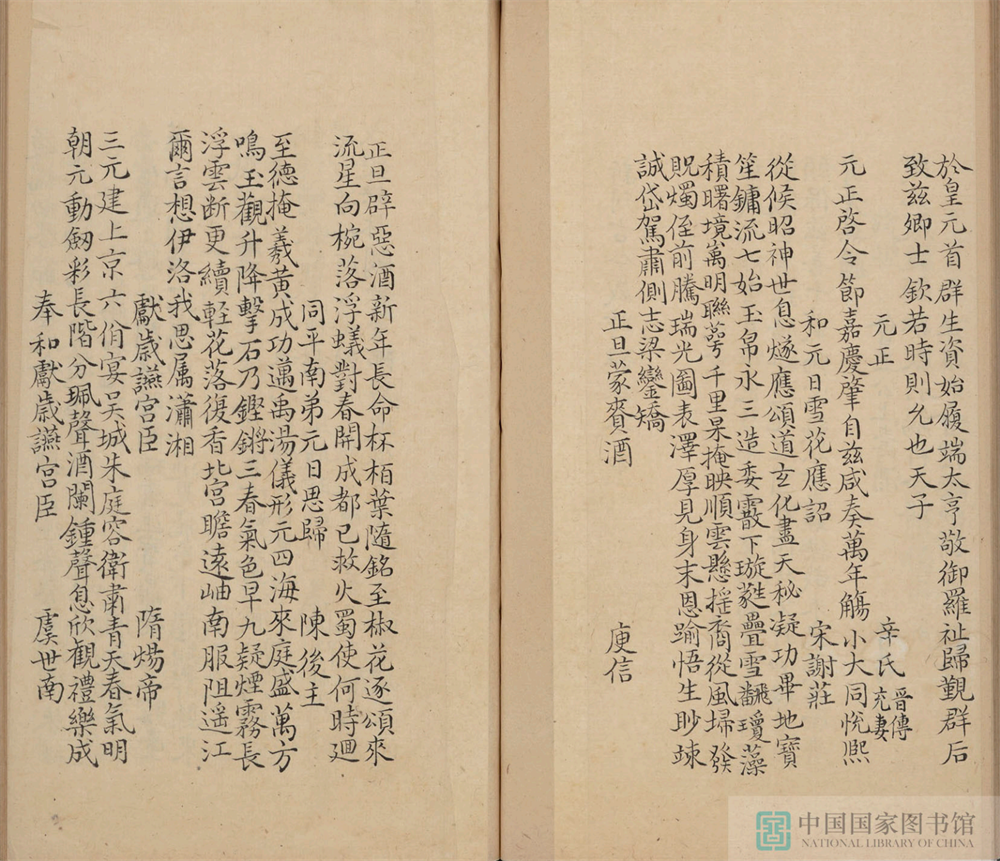 於皇元首群生資始履端太亨敬御羅祉歸覲群后
致兹卿士欽若時則允也天子
元正 辛氏晋傳充妻
元正啓令節嘉慶肇自兹咸奏萬年觴小大同悦熙
和元日雪花應詔 宋謝莊
從候昭神世息燧應頌道玄化盡天秘凝功畢地寶
笙鏞流七始玉帛永三造委霰下璇蕤疊雪翻瓊藻
積曙境萬明聯萼千里杲掩映順雲懸揺裔從風埽發
貺燭侄前騰瑞光圖表澤厚見身末恩踰悟生眇竦
誠岱駕肅側志梁鑾矯
正旦蒙賚酒 庾信
正旦辟惡酒新年長命杯栢葉隨銘至椒花逐頌來
流星向椀落浮蟻對春開成都已救火蜀使何時廻
同平南弟元日思歸 陳後主
至德掩羲黄成功邁禹湯儀形元四海來庭盛萬方
鳴玉觀升降擊石乃鏗鏘三春氣色早九疑煙霧長
浮雲断更續輕花落復香北宫瞻遠岫南服阻遥江
爾言想伊洛我思属瀟湘
獻歲讌宫臣 隋煬帝
三元建上京六佾宴吴城朱庭容衛肅青天春氣明
朝元動劒彩長階分珮聲酒闌鍾聲息欣觀禮樂成
奉和獻歲讌宫臣 虞世南
中国国家图书馆
NATIONAL LIBRARY OF CHINA